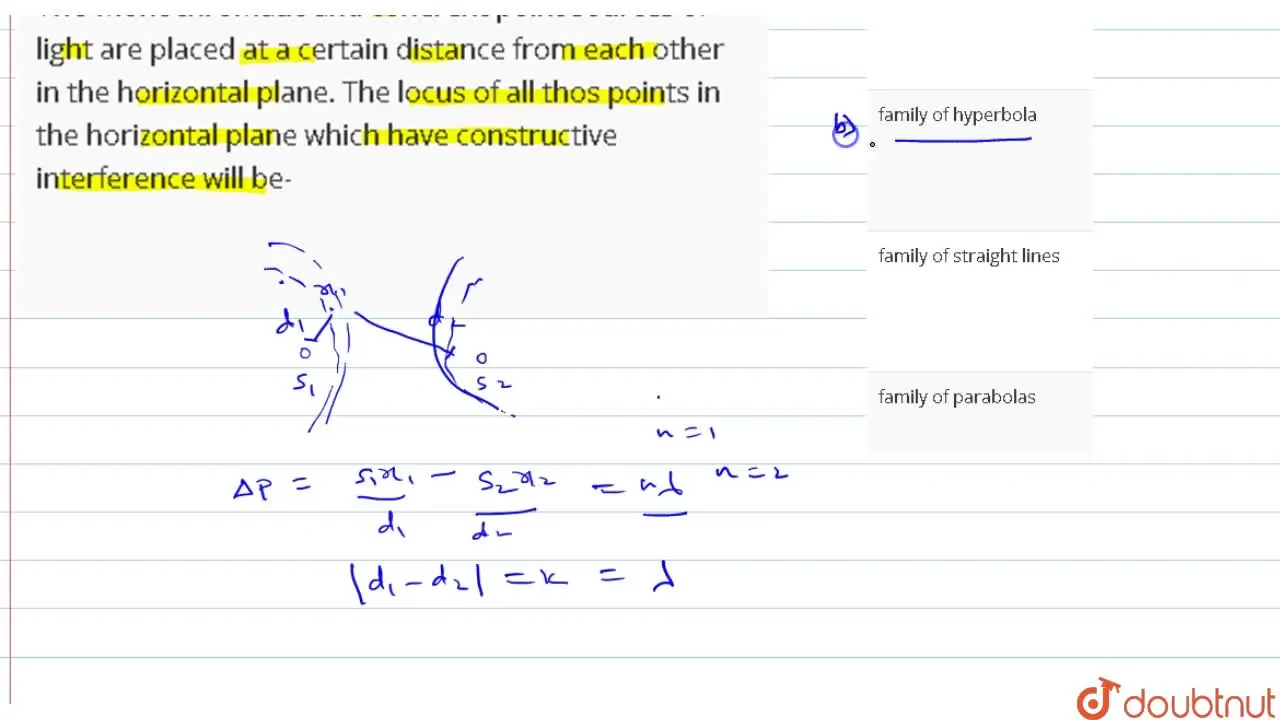 light are placed at a certain distance from each other
in the horizontal plane. The locus of all thos points in
the horizontal plane which have constructive
interference will be-
b)
family of hyperbola
family of straight lines
family of parabolas
x1
d1
d2
0
S1
0
S2
n=1
ΔP = S1x1 - S2x2 = nλ n=2
d1 d2
|d1-d2| = K = λ
doubtnut